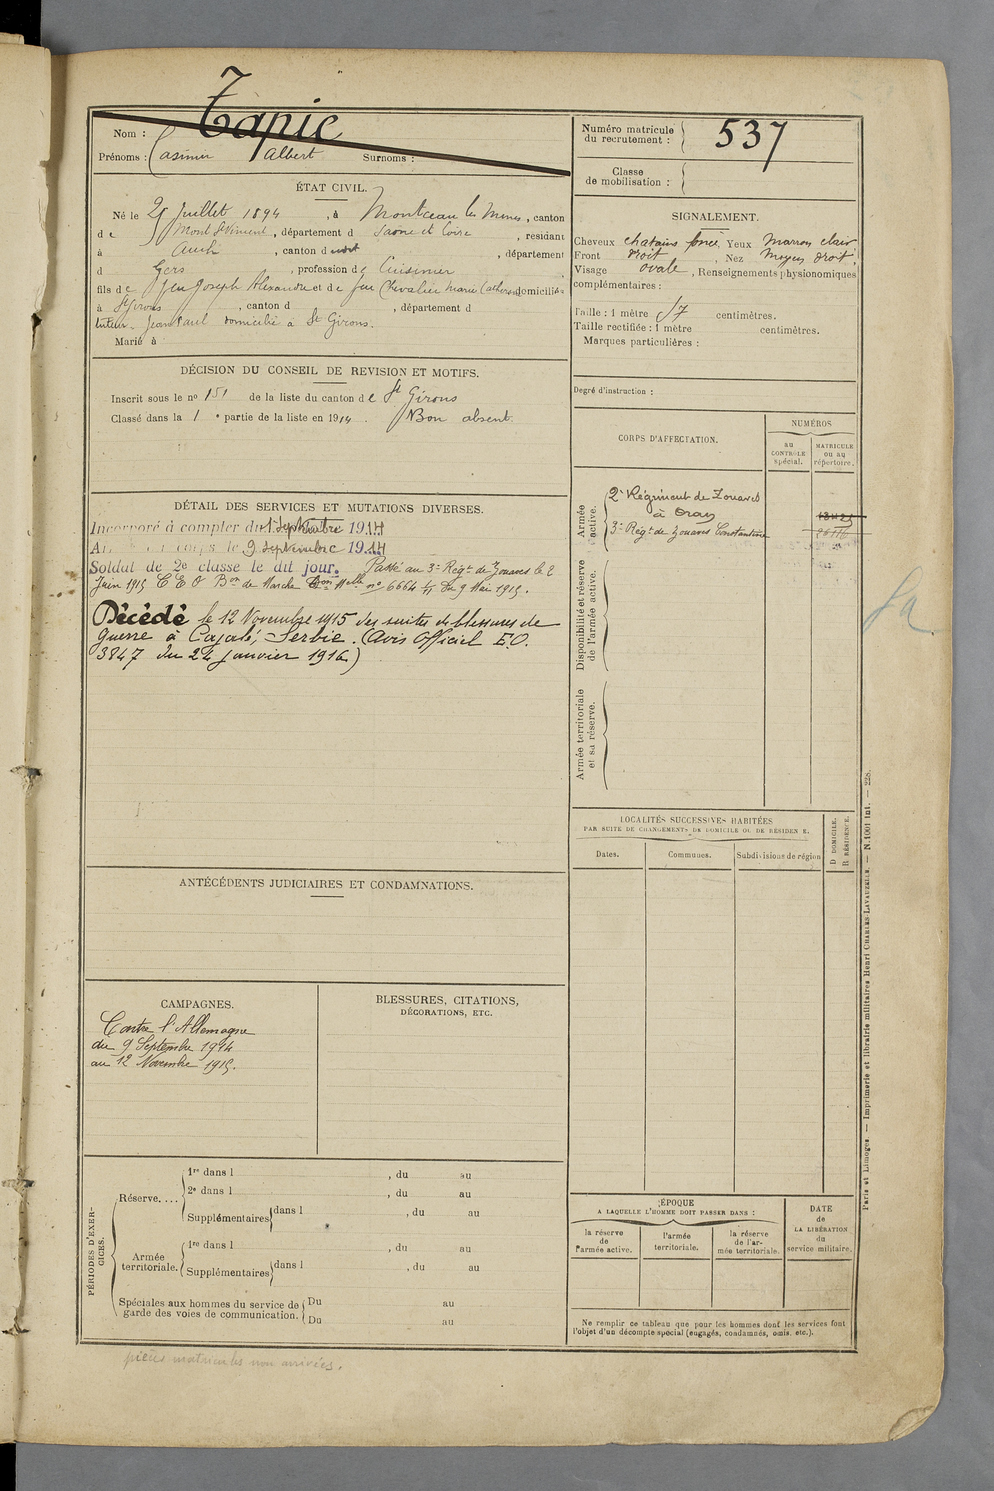 Tapie
Nom :
Prénoms : Casimir Albert Surnoms :
Numéro matricule du recrutement : 537
Classe de mobilisation :
ÉTAT CIVIL.
Né le 25 Juillet 1894, à Montceau les Mines, canton
de Mont St Vincent, département d Saone et Loire, résidant
à Auch, canton d nord, département
d Gers, profession de Cuisinier
fils de feu Joseph Alexandre et de feu Chevalier Marie Catherine domiciliés
à St Girons, canton d , département d
tuteur. Jean Paul domicilié à St Girons.
Marié à
SIGNALEMENT.
Cheveux chatains foncé Yeux Marron clair
Front droit, Nez Moyen droit,
Visage ovale, Renseignements physionomiques
complémentaires :
Taille : 1 mètre 57 centimètres.
Taille rectifiée : 1 mètre centimètres.
Marques particulières :
Degré d'instruction :
DÉCISION DU CONSEIL DE REVISION ET MOTIFS.
Inscrit sous le no 151 de la liste du canton de St Girons
Classé dans la 1 e partie de la liste en 1914. Bon absent.
DÉTAIL DES SERVICES ET MUTATIONS DIVERSES.
Incorporé à compter du 1 Septembre 1914
Arrivé au corps le 9 Septembre 1914
Soldat de 2e classe le dit jour. Passé au 3e Régt de Zouaves le 2
Juin 1915 C E O Bon de Marche Don Mlle no 6664 1/11 du 9 Mai 1915.
Décédé le 12 Novembre 1915 des suites de blessures de
guerre à Cajalé, Serbie. (Avis Officiel E.O.
3847 du 24 janvier 1916)
CORPS D'AFFECTATION.
NUMÉROS
au CONTRÔLE spécial.
MATRICULE ou au répertoire.
Armée active.
2e Régiment de Zouaves
à Oran
3e Régt de Zouaves Constantine
Disponibilité et réserve de l'armée active.
Armée territoriale et sa réserve.
Sa
LOCALITÉS SUCCESSIVES HABITÉES
PAR SUITE DE CHANGEMENTS DE DOMICILE OU DE RÉSIDENCE.
Dates.
Communes.
Subdivisions de région
D DOMICILE.
R RÉSIDENCE.
ANTÉCÉDENTS JUDICIAIRES ET CONDAMNATIONS.
CAMPAGNES.
Contre l'Allemagne
du 9 Septembre 1914
au 12 Novembre 1915.
BLESSURES, CITATIONS,
DÉCORATIONS, ETC.
PÉRIODES D'EXERCICES.
Réserve....
1re dans l , du au
2e dans l , du au
Supplémentaires dans l , du au
Armée territoriale.
1re dans l , du au
Supplémentaires dans l , du au
Spéciales aux hommes du service de garde des voies de communication.
Du au
Du au
ÉPOQUE
A LAQUELLE L'HOMME DOIT PASSER DANS :
la réserve de l'armée active.
l'armée territoriale.
la réserve de l'armée territoriale.
DATE de LA LIBÉRATION du service militaire.
Ne remplir ce tableau que pour les hommes dont les services font
l'objet d'un décompte spécial (engagés, condamnés, omis, etc.).
Paris et Limoges. — Imprimerie et librairie militaires Henri CHARLES-LAVAUZELLE. — N. 1001 int. — 228.
pièces matricules non arrivées.